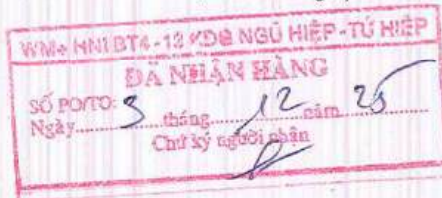 WM+ HN1 BT4-12 KDB NGŨ HIỆP - TỨ HIỆP
ĐÃ NHẬN HÀNG
SỐ PO/TO:
Ngày 3 tháng 12 năm 25
Chữ ký người nhận